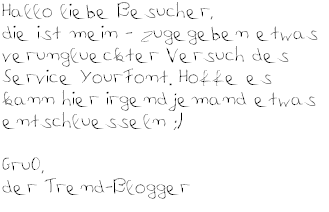 Hallo liebe Besucher,
die ist mein - zugegeben etwas
verunglueckter Versuch des
Service YourFont. Hoffe es
kann hier irgendjemand etwas
entschluesseln ;)

Gruß,
der Trend-Blogger